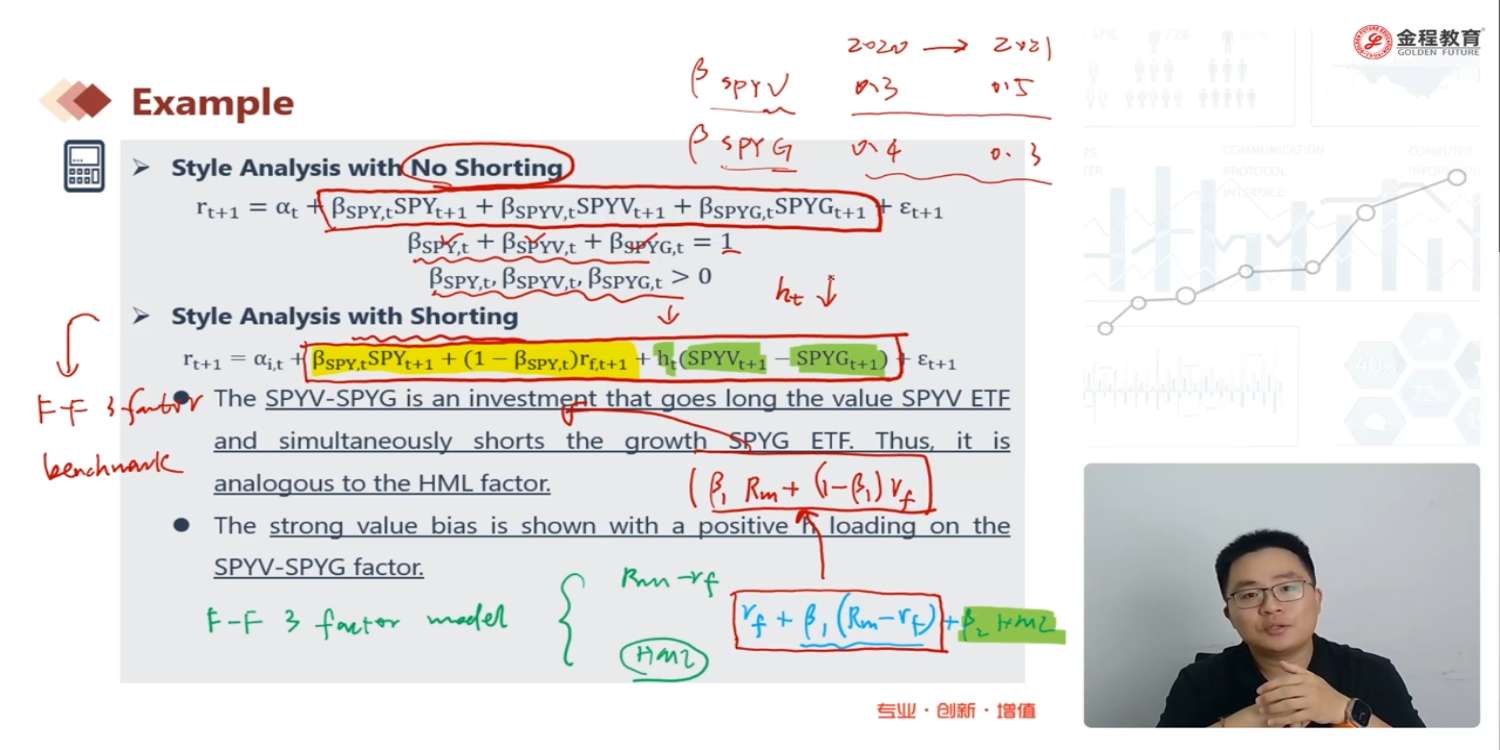 金程教育
GOLDEN FUTURE
2020 → 2021
β SPYV 0.3 0.5
β SPYG 0.4 0.3
Example
➢ Style Analysis with No Shorting
r_{t+1} = α_t + β_{SPY,t}SPY_{t+1} + β_{SPYV,t}SPYV_{t+1} + β_{SPYG,t}SPYG_{t+1} + ε_{t+1}
β_{SPY,t} + β_{SPYV,t} + β_{SPYG,t} = 1
β_{SPY,t}, β_{SPYV,t}, β_{SPYG,t} > 0
h_t ↓
➢ Style Analysis with Shorting
r_{t+1} = α_{i,t} + β_{SPY,t}SPY_{t+1} + (1 − β_{SPY,t})r_{f,t+1} + h_t(SPYV_{t+1} − SPYG_{t+1}) + ε_{t+1}
F-F 3 factor
benchmark
● The SPYV-SPYG is an investment that goes long the value SPYV ETF
and simultaneously shorts the growth SPYG ETF. Thus, it is
analogous to the HML factor.
(β₁ Rm + (1-β₁) rf
● The strong value bias is shown with a positive h loading on the
SPYV-SPYG factor.
F-F 3 factor model { Rm-rf
HML
rf + β₁(Rm-rf) + β₂ HML
专业·创新·增值
COMMUNICATION
PROTOCOL